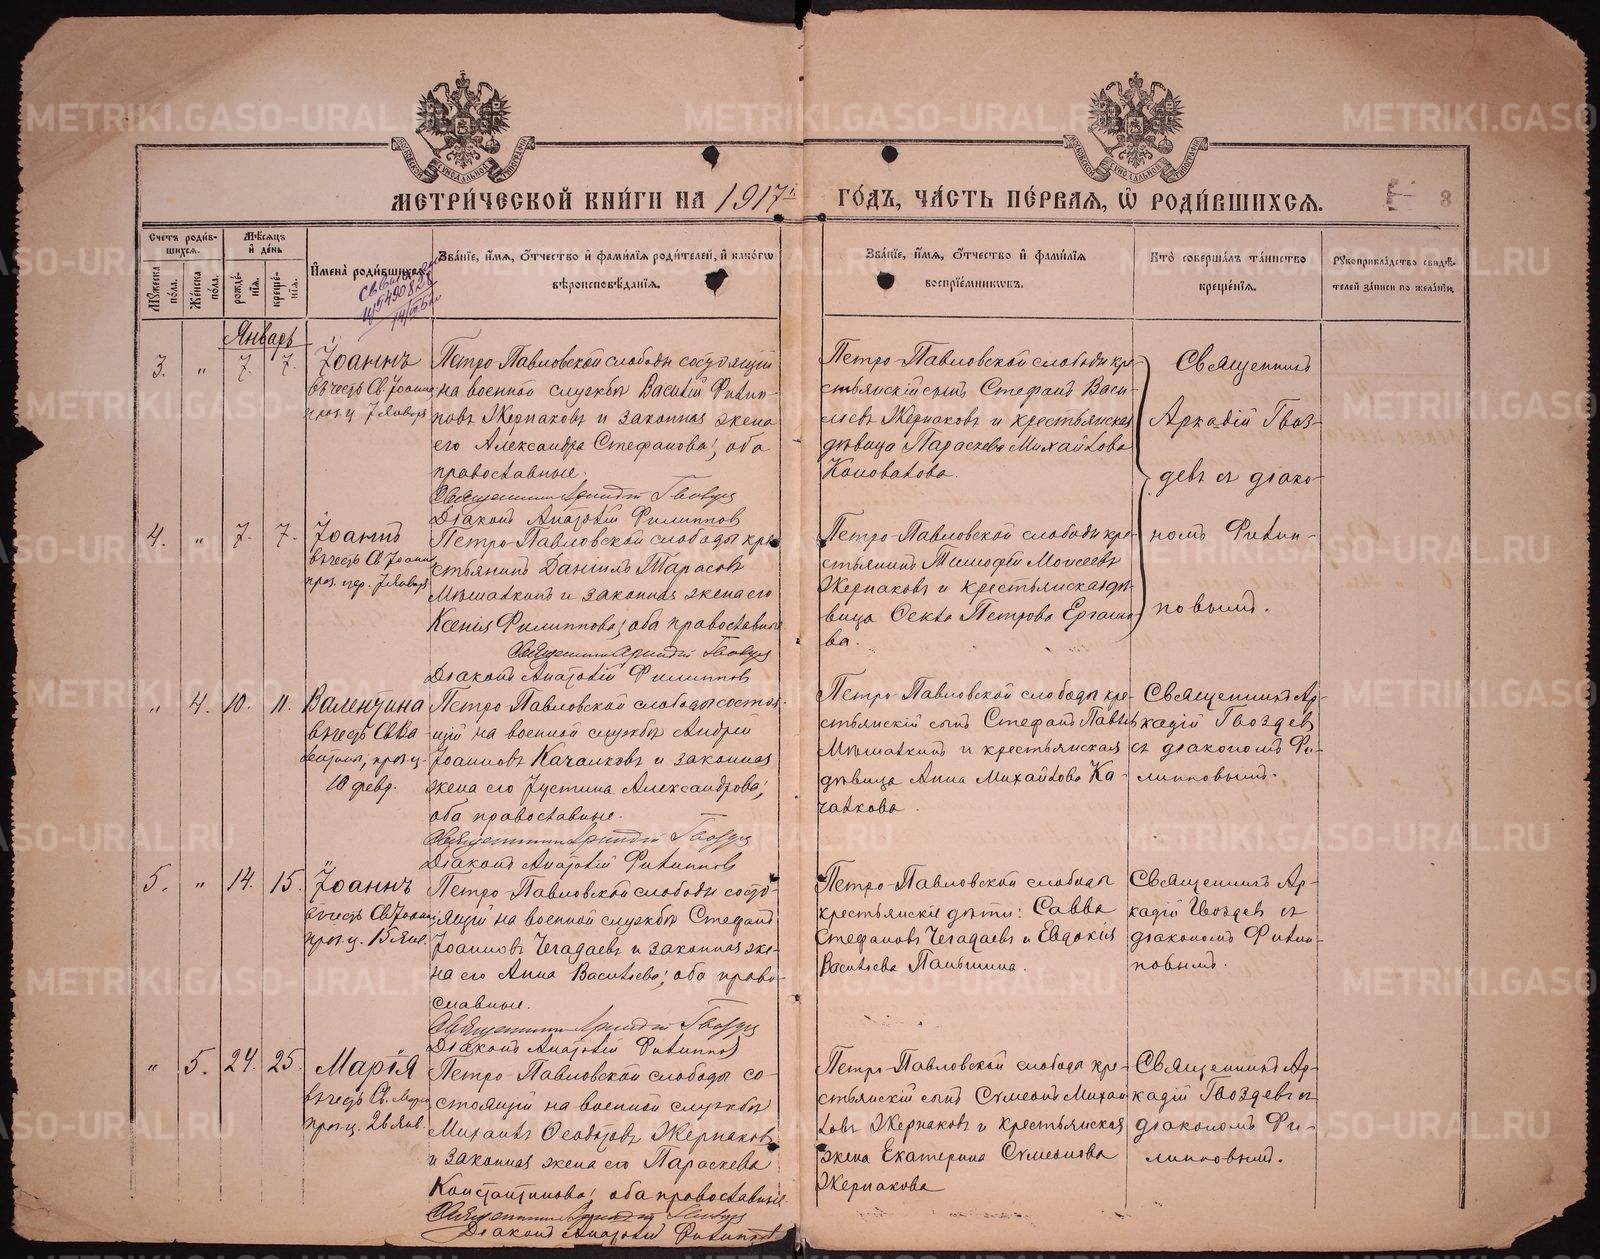 МЕТРИЧЕСКОЙ КНИГИ НА 1917й
ГОДЪ, ЧАСТЬ ПЕРВАЯ, Ѡ РОДИВШИХСЯ.
8
Счетъ родив-
шихся.
Мѣсяцъ
и день
Мужеска
пола.
Женска
пола.
рожде-
нія.
креще-
нія.
Имена родившихся.
Званіе, имя, отчество и фамилія родителей, и какогѡ
вѣроисповѣданія.
Званіе, имя, отчество и фамилія
воспріемникѡвъ.
Кто совершалъ таинство
крещенія.
Рукоприкладство свидѣ-
телей записи по желанію.
Январь
3. „ 7. 7.
Іоаннъ
въ честь Св. Іоанна
праз. 7 Января
Петро-Павловской слободы состоящій
на военной службѣ Василій Филип-
повъ Жернаковъ и законная жена
его Александра Стефанова; оба
православные.
Священникъ Аркадій Гвоздевъ
Діаконъ Анатолій Филиппов
Петро-Павловской слободы кре-
стьянскій сынъ Стефанъ Васи-
льевъ Жернаковъ и крестьянская
дѣвица Параскева Михайлова
Коновалова.
Священникъ
Аркадій Гвоз-
девъ съ діако-
номъ Филип-
повымъ.
4. „ 7. 7.
Іоаннъ
въ честь Св. Іоанна
7 Января
Петро-Павловской слободы кре-
стьянинъ Даніилъ Тарасовъ
Мѣшалкинъ и законная жена его
Ксенія Филиппова; оба православные
Священникъ Аркадій Гвоздев
Діаконъ Анатолій Филиппов
Петро-Павловской слободы кре-
стьянинъ Тимофей Моисеевъ
Жернаковъ и крестьянская дѣ-
вица Фекла Петрова
ва.
„ 4. 10. 11.
Валентина
въ честь Св. Ва-
лентины, праз.
10 февр.
Петро-Павловской слободы состоя-
щій на военной службѣ Андрей
Іоанновъ Качалковъ и законная
жена его Іустина Александрова;
оба православные.
Священникъ Аркадій Гвоздев
Діаконъ Анатолій Филиппов
Петро-Павловской слободы кре-
стьянскій сынъ Стефанъ Павловъ
Мѣшалкинъ и крестьянская
дѣвица Анна Михайлова Ка-
чалкова.
Священникъ Ар-
кадій Гвоздевъ
съ діакономъ Фи-
липповымъ.
5. „ 14. 15.
Іоаннъ
въ честь Св. Іоанна
15 Янв.
Петро-Павловской слободы состо-
ящій на военной службѣ Стефанъ
Іоанновъ Чегадаевъ и законная же-
на его Анна Васильева; оба право-
славные.
Священникъ Аркадій Гвоздев
Діаконъ Анатолій Филиппов
Петро-Павловской слободы
крестьянскіе дѣти: Савва
Стефановъ Чегадаевъ и Евдокія
Васильева Паньшина.
Священникъ Ар-
кадій Гвоздевъ съ
діакономъ Филип-
повымъ.
„ 5. 24. 25.
Марія
въ честь Св. Маріи
26 Янв.
Петро-Павловской слободы со-
стоящій на военной службѣ
Михаилъ Жернаковъ
и законная жена его Параскева
Константинова; оба православные
Священникъ Аркадій Гвоздев
Діаконъ Анатолій Филиппов
Петро-Павловской слободы кре-
стьянскій сынъ Симеонъ Михай-
ловъ Жернаковъ и крестьянская
жена Екатерина Симеонова
Жернакова
Священникъ Ар-
кадій Гвоздевъ съ
діакономъ Фи-
липповымъ.
METRIKI.GASO-URAL.RU